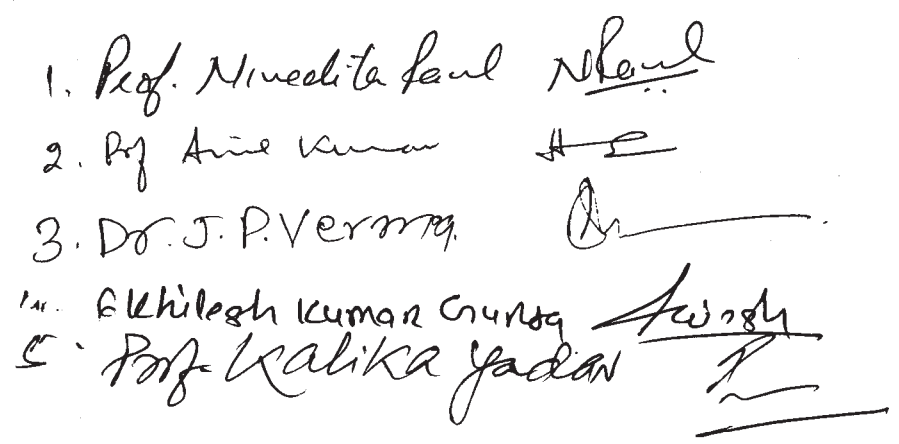 1. Prof. Nivedita Paul NPaul
2. Prof Anil Kumar
3. Dr. J. P. Verma.
Akhilesh Kumar
5. Prof. Kalika Yadav